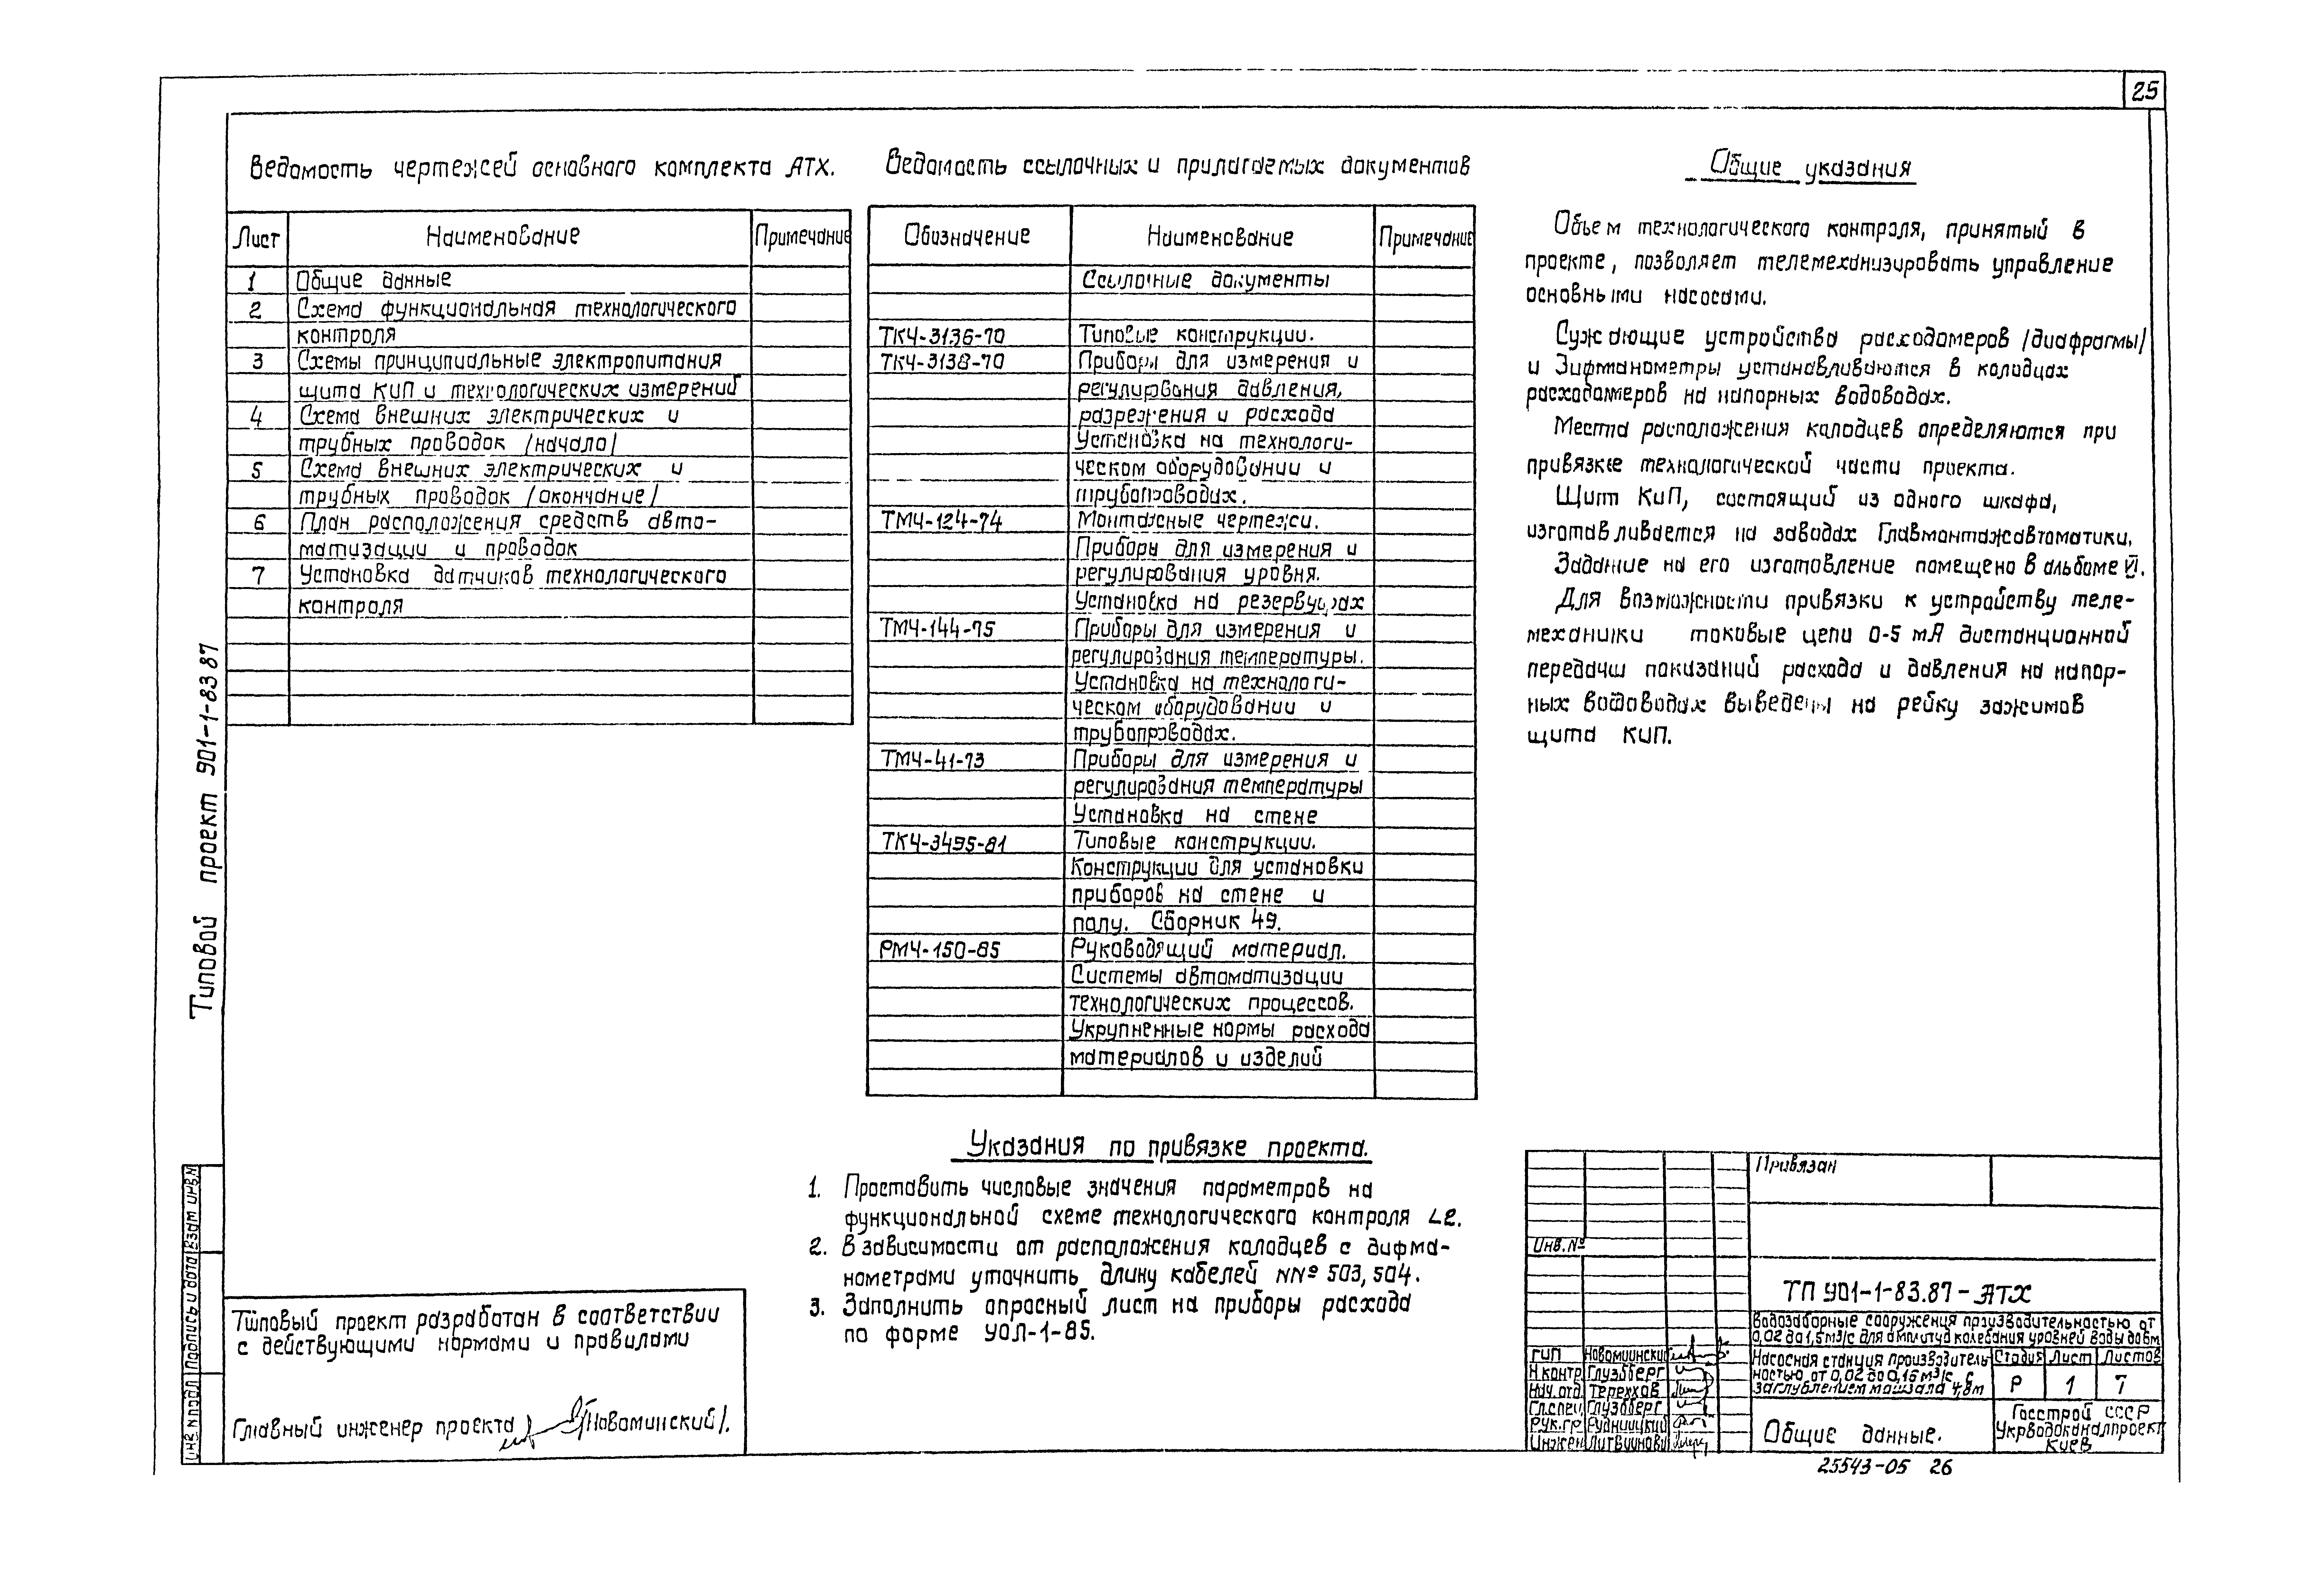 25
Ведомость чертежей основного комплекта АТХ.
Лист Наименование Примечание
1 Общие данные
2 Схема функциональная технологического
контроля
3 Схемы принципиальные электропитания
щита КИП и технологических измерений
4 Схема внешних электрических и
трубных проводок /начало/
5 Схема внешних электрических и
трубных проводок /окончание/
6 План расположения средств авто-
матизации и проводок
7 Установка датчиков технологического
контроля
Ведомость ссылочных и прилагаемых документов
Обозначение Наименование Примечание
Ссылочные документы
ТКЧ-3136-70 Типовые конструкции.
ТКЧ-3138-70 Приборы для измерения и
регулирования давления,
разрежения и расхода
Установка на технологи-
ческом оборудовании и
трубопроводах.
ТМЧ-124-74 Монтажные чертежи.
Приборы для измерения и
регулирования уровня.
Установка на резервуарах
ТМЧ-144-75 Приборы для измерения и
регулирования температуры.
Установка на технологи-
ческом оборудовании и
трубопроводах.
ТМЧ-41-73 Приборы для измерения и
регулирования температуры
Установка на стене
ТКЧ-3495-81 Типовые конструкции.
Конструкции для установки
приборов на стене и
полу. Сборник 49.
РМЧ-150-85 Руководящий материал.
Системы автоматизации
технологических процессов.
Укрупненные нормы расхода
материалов и изделий
Общие указания
Объем технологического контроля, принятый в
проекте, позволяет телемеханизировать управление
основными насосами.
Сужающие устройства расходомеров /диафрагмы/
и дифманометры устанавливаются в колодцах
расходомеров на напорных водоводах.
Места расположения колодцев определяются при
привязке технологической части проекта.
Щит КИП, состоящий из одного шкафа,
изготавливается на заводах Главмонтажавтоматики.
Задание на его изготовление помещено в альбоме VI.
Для возможности привязки к устройству теле-
механики токовые цепи 0-5 мА дистанционной
передачи показаний расхода и давления на напор-
ных водоводах выведены на рейку зажимов
щита КИП.
Указания по привязке проекта.
1. Проставить числовые значения параметров на
функциональной схеме технологического контроля л.2.
2. В зависимости от расположения колодцев с дифма-
нометрами уточнить длину кабелей №№ 503, 504.
3. Заполнить опросный лист на приборы расхода
по форме УОЛ-1-85.
Типовой проект 901-1-83 87
Инв. N подл Подпись и дата Взам инв.N
Типовый проект разработан в соответствии
с действующими нормами и правилами
Главный инженер проекта /Новоминский/.
Привязан
Инв.№
ТП 901-1-83.87-АТХ
Водозаборные сооружения производительностью от
0,02 до 1,5 м3/с для амплитуд колебания уровней воды до 6м
ГИП Новоминский
Н контр Глузберг
Нач. отд. Терехов
Гл.спец. Глузберг
Рук.гр Рудницкий
Инжен Литвинова
Насосная станция производитель-
ностью от 0,02 до 0,15 м3/с, с
заглублением машзала 4,8м
Стадия Лист Листов
Р 1 7
Общие данные.
Госстрой СССР
Укрводоканалпроект
Киев
25543-05 26